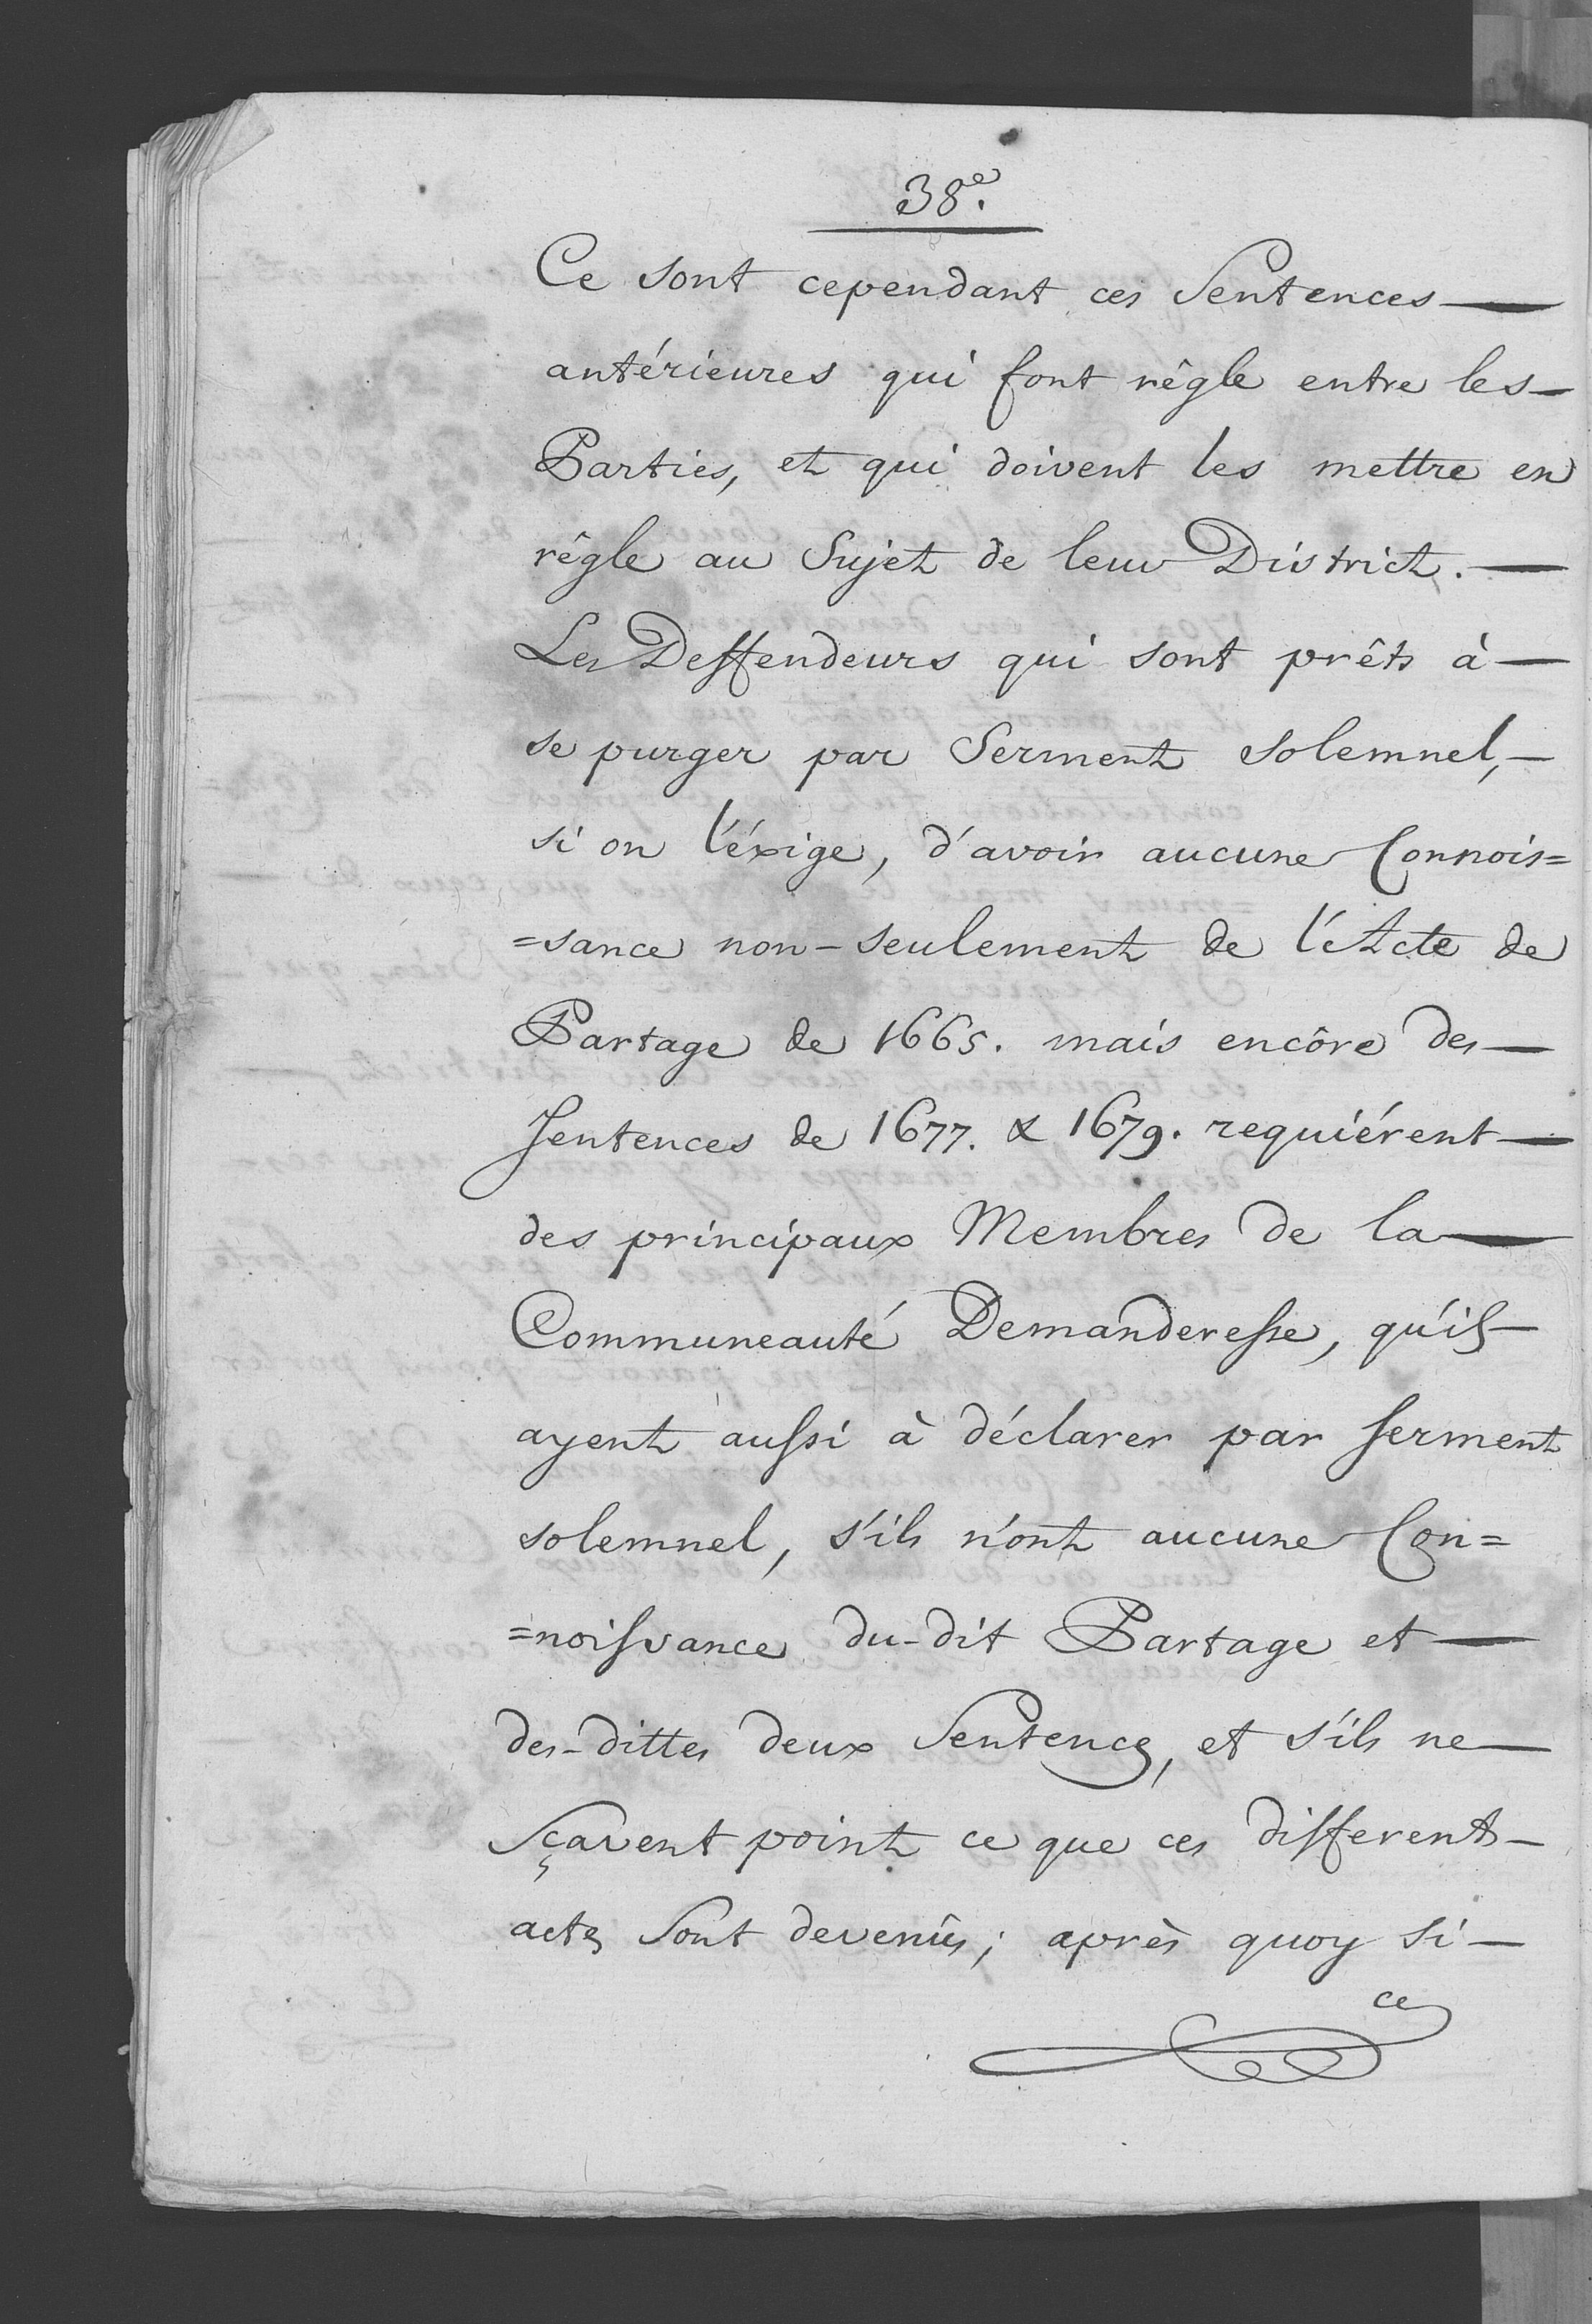 38e.
Ce sont cependant ces Sentences —
antérieures qui font règle entre les —
Parties, et qui doivent les mettre en
règle au Sujet de leur District. —
Les Deffendeurs qui sont prêts à —
se purger par Serment solemnel, —
si on l'éxige, d'avoir aucune Connois=
=sance non-seulement de l'Acte de
Partage de 1665. mais encôre des —
Sentences de 1677. & 1679. requiérent —
des principaux Membres de la —
Communeauté Demanderesse, qu'ils —
ayent aussi à déclarer par serment
solemnel, s'ils n'ont aucune Con=
=noissance du-dit Partage et —
des-dittes deux Sentences, et s'ils ne —
Sçavent point ce que ces differents —
actes Sont devenûs; après quoy si —
ce